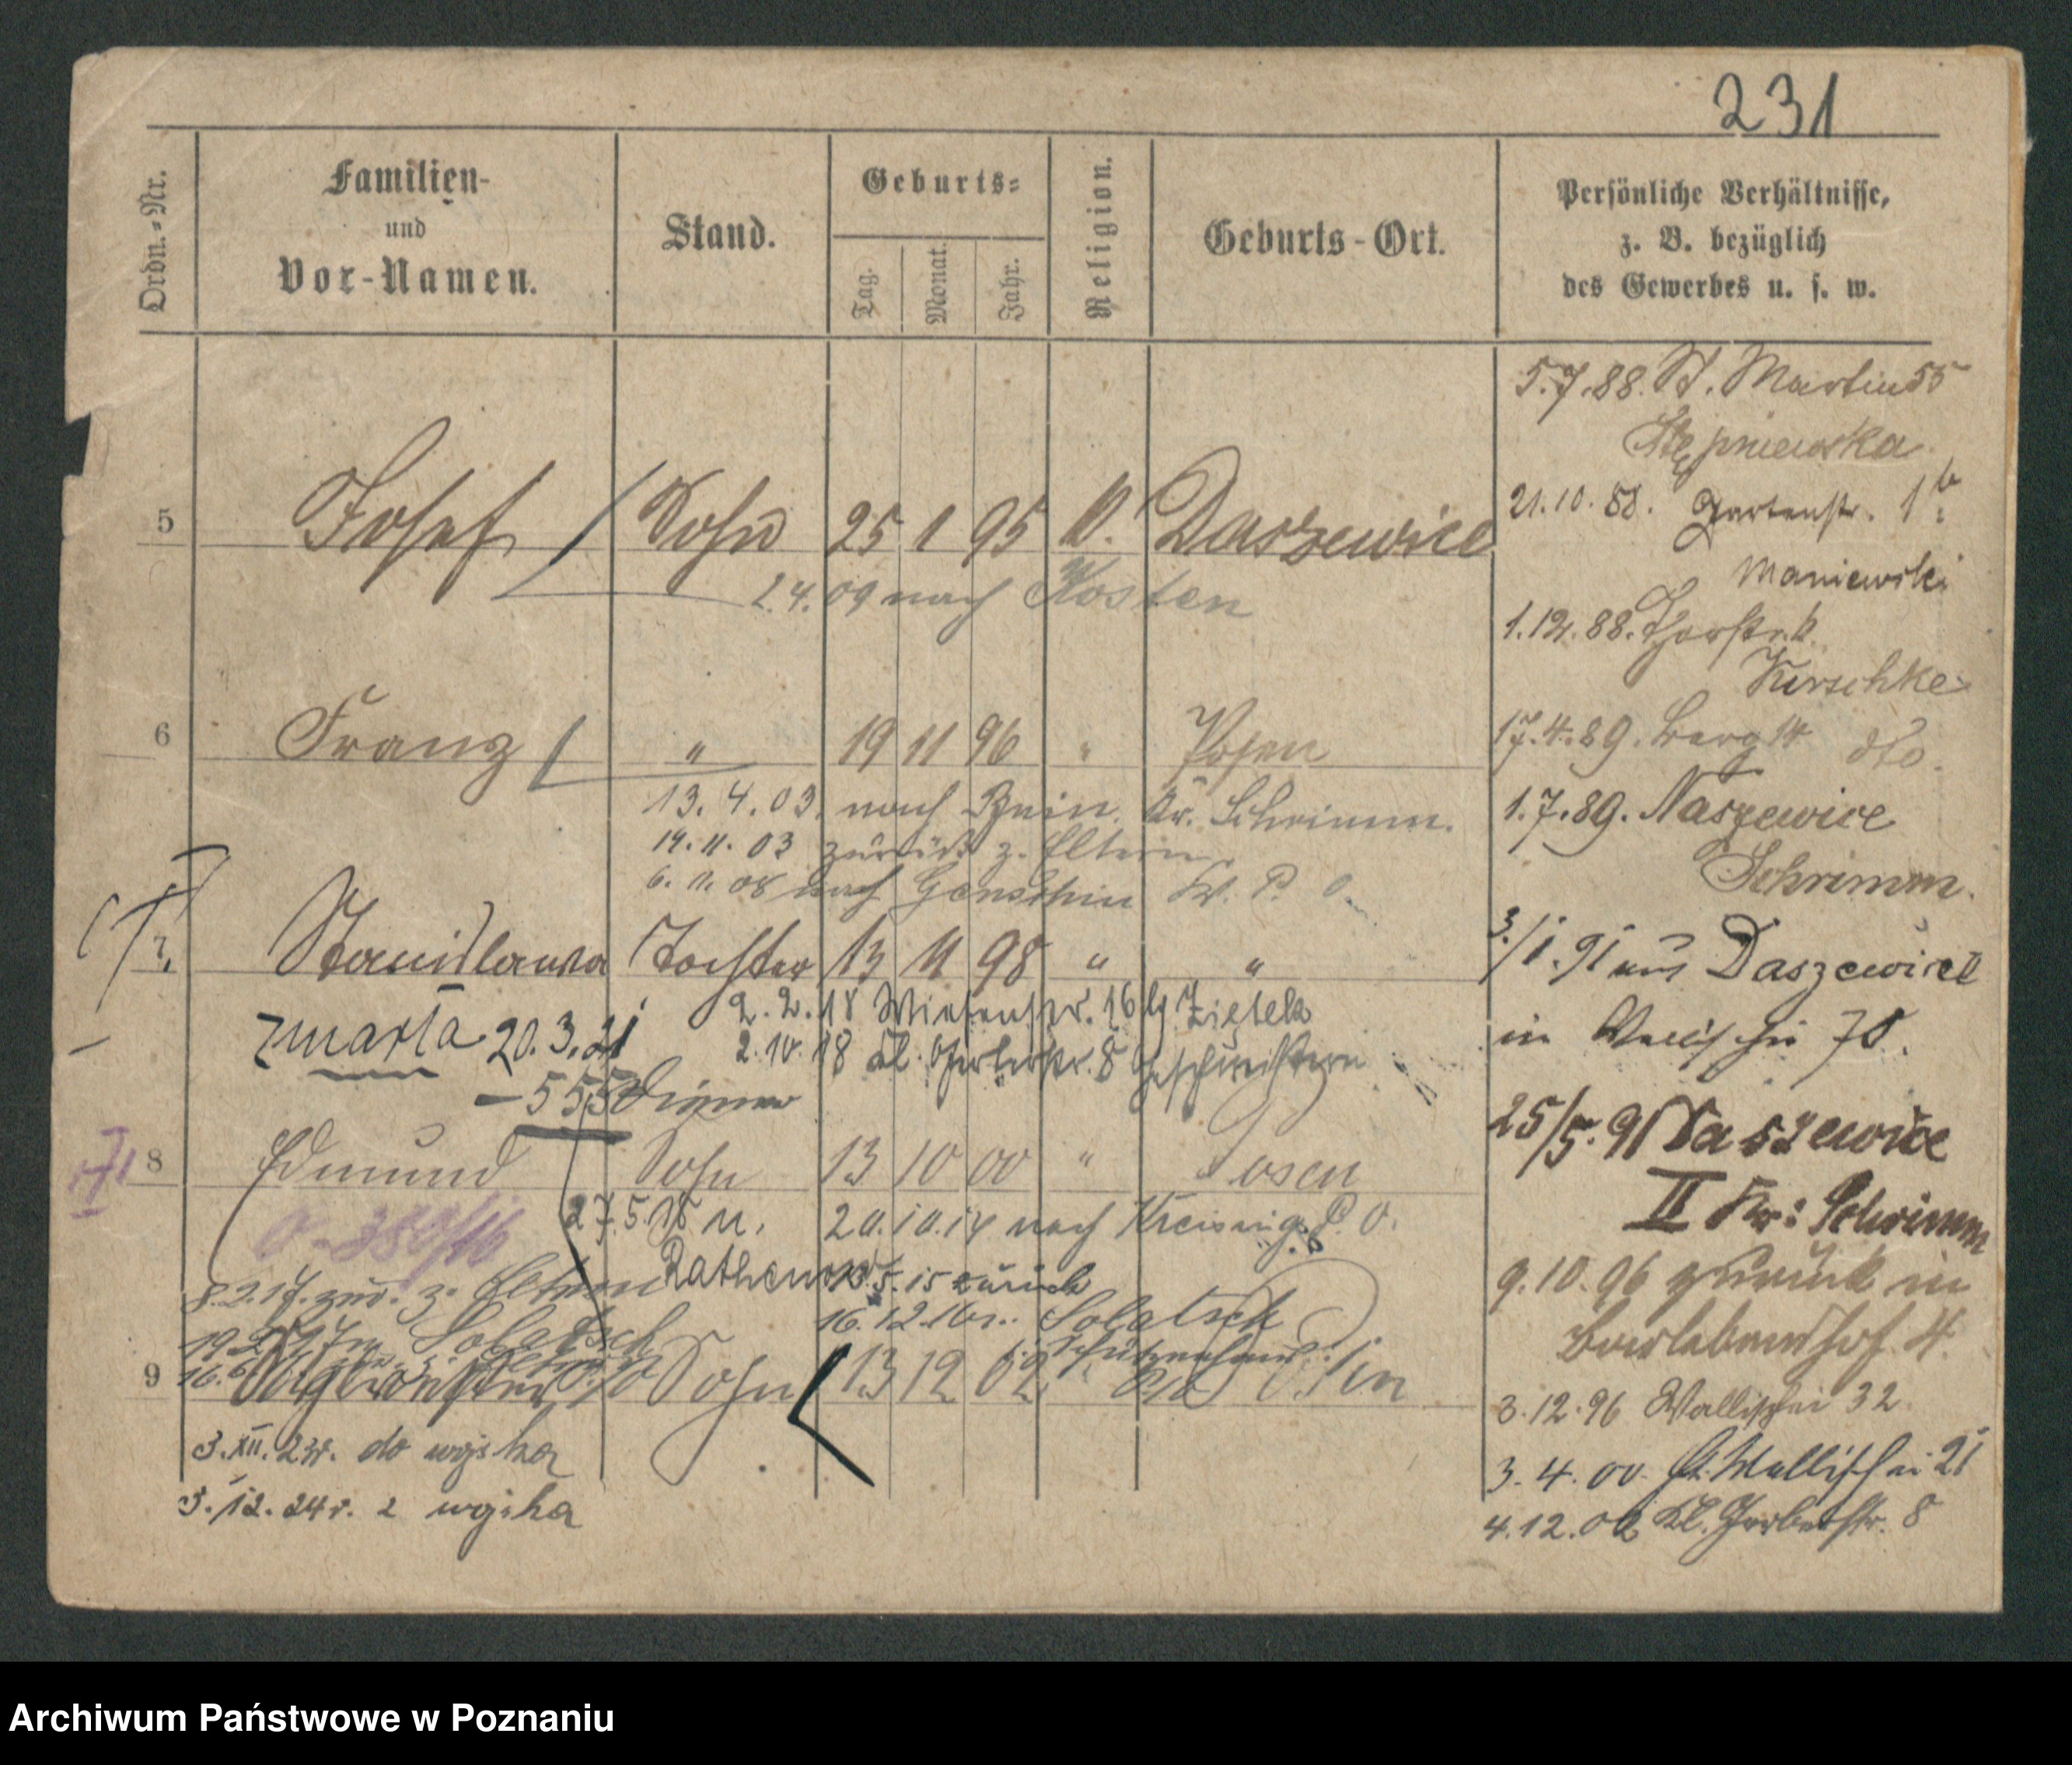 231
Ordn.-Nr.
Familien-
und
Vor-Namen.
Stand.
Geburts-
Tag.
Monat.
Jahr.
Religion.
Geburts-Ort.
Persönliche Verhältnisse,
z. B. bezüglich
des Gewerbes u. s. w.
5 Josef Sohn 25 1 95 Daszewice
2.4.09 nach Kosten
6 Franz " 19 11 96 " Posen
13.4.03 nach Bnin Kr. Schrimm.
14.11.03 zurück z. Eltern
6.11.08 nach
7. Stanislawa Tochter 13 11 98 " "
2.2.18 Wiesenstr. 16 Zietek
zmarła 20.3.21
2.10.18 Kl. Gerberstr. 8 Geschwistern
8 Edmund Sohn 13 10 00 " Posen
27.5.18 n. 20.10.14 nach Kreising P. O.
Rathenow 5.15 zurück
8.2.17. zur. z. Eltern
16.12.16 n. Solatsch
Solatsch
9 Sohn 13 12 02 Posen
3.XII.23r. do wojska
5.12.24r. z wojska
5.7.88. St. Martin 55
Stępniewska
21.10.88. Gartenstr. 1b
Maniewski
1.12.88. Thorstr.
Kirschke
17.4.89. Berg 14 dto.
1.7.89. Naszewice
Schrimm.
3./1.91 aus Daszewice
in Wallischei 70.
25/5.91 Daszewice
II Kr: Schrimm
9.10.96 zurück in
Bourlebaushof 4.
3.12.96 Wallischei 32
3.4.00. Wallischei 21
4.12.02 Kl. Gerberstr. 8
Archiwum Państwowe w Poznaniu